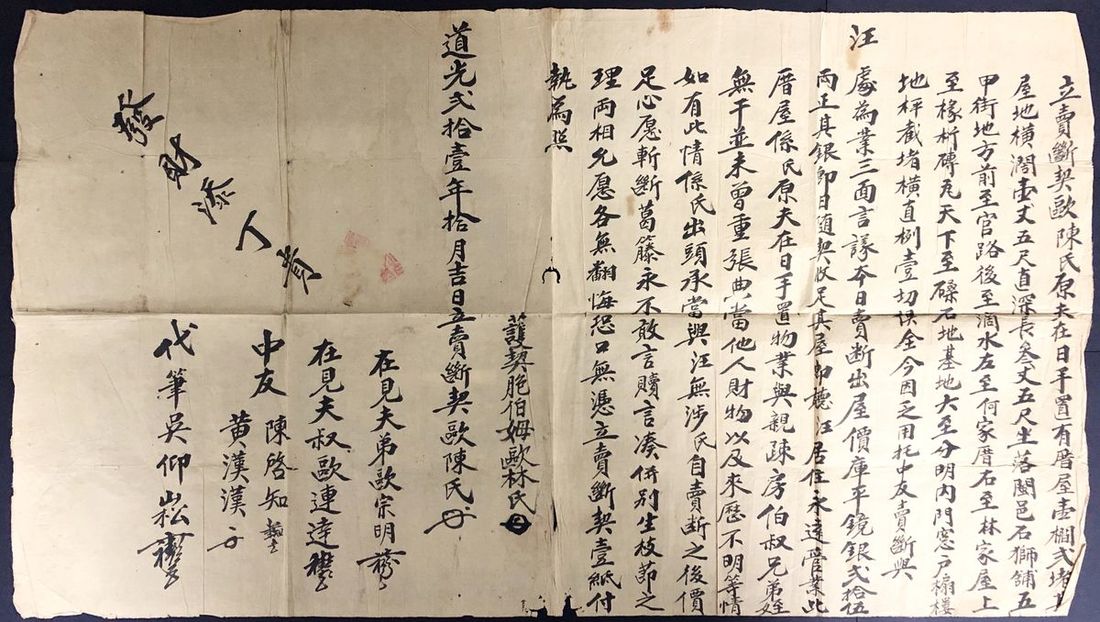 立賣斷契歐陳氏原夫在日手置有厝屋壹棡弍堵
屋地橫濶壹丈五尺直深長叁丈五尺坐落閩邑石獅舖五
甲街地方前至官路後至滴水左至何家厝右至林家屋上
至椽桁磚瓦天下至磉石地基地大至分明内門窓户楄樓
地枰截堵橫直栵壹切俱全今因乏用托中友賣斷與
汪
處為業三面言議夲日賣斷出屋價庫平鏡銀弍拾伍
両正其銀即日随契收足其屋即聽汪居住永遠管業此
厝屋係氏原夫在日手置物業與親疎房伯叔兄弟姪
無干並未曾重張典當他人財物以及來歷不明等情
如有此情係氏出頭承當與汪無涉氏自賣斷之後價
足心愿斬斷葛籐永不敢言贖言湊併别生枝節之
理両相允愿各無翻悔恐口無憑立賣斷契壹紙付
執為照
護契胞伯姆歐林氏
道光弍拾壹年拾月吉日立賣斷契歐陳氏
在見夫弟歐宗明
在見夫叔歐連達
中友
陳啓知
黃漢漢
代筆吳仰崧
發財添丁